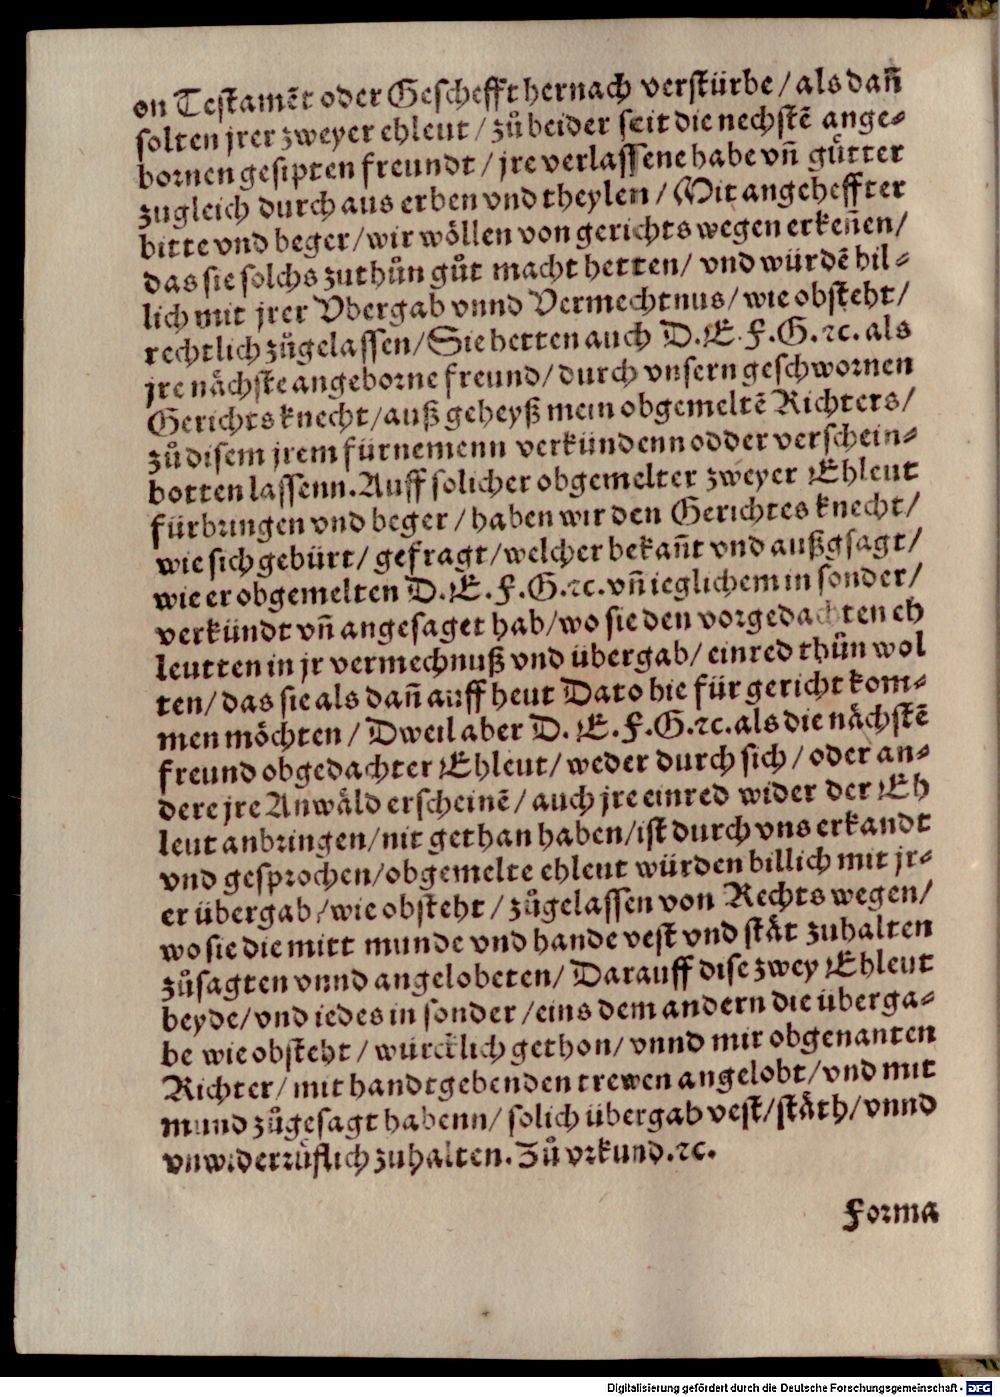 on Testamēt oder Geschefft hernach verstürbe / als dañ
solten jrer zweyer ehleut / zů beider seit die nechstē ange-
bornen gesipten freundt / jre verlassene habe vñ gůtter
zugleich durch aus erben vnd theylen / Mit angeheffter
bitte vnd beger / wir wöllen von gerichts wegen erkeñen /
das sie solchs zuthůn gůt macht hetten / vnd würdē bil-
lich mit jrer Vbergab vnnd Vermechtnus / wie obsteht /
rechtlich zůgelassen / Sie hetten auch D. E. F. G. ꝛc. als
jre nächste angeborne freund / durch vnsern geschwornen
Gerichts knecht / auß geheyß mein obgemeltē Richters /
zů disem jrem fürnemenn verkündenn odder verschein-
botten lassenn. Auff solicher obgemelter zweyer Ehleut
fürbringen vnd beger / haben wir den Gerichtes knecht /
wie sich gebürt / gefragt / welcher bekañt vnd außgsagt /
wie er obgemelten D. E. F. G. ꝛc. vñ ieglichem in sonder /
verkündt vñ angesaget hab / wo sie den vorgedachten eh
leutten in jr vermechnuß vnd übergab / einred thůn wol
ten / das sie als dañ auff heut Dato hie für gericht kom-
men möchten / Dweil aber D. E. F. G. ꝛc. als die nächstē
freund obgedachter Ehleut / weder durch sich / oder an-
dere jre Anwäld erscheinē / auch jre einred wider der Eh
leut anbringen / nit gethan haben / ist durch vns erkandt
vnd gesprochen / obgemelte ehleut würden billich mit jr-
er übergab / wie obsteht / zůgelassen von Rechts wegen /
wo sie die mitt munde vnd hande vest vnd stät zuhalten
zůsagten vnnd angelobeten / Darauff dise zwey Ehleut
beyde / vnd iedes in sonder / eins dem andern die überga-
be wie obsteht / würcklich gethon / vnnd mir obgenanten
Richter / mit handtgebenden trewen angelobt / vnd mit
mund zůgesagt habenn / solich übergab vest / stäth / vnnd
vnwiderrůflich zuhalten. Zů vrkund. ꝛc.
Forma
Digitalisierung gefördert durch die Deutsche Forschungsgemeinschaft - DFG